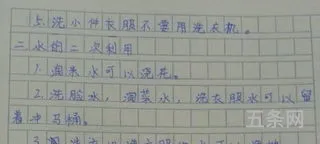 5.洗小件衣服不要用洗衣机。
二水的二次利用
1.淘米水可以浇花。
2.洗脸水,洗菜水,洗衣服水可以留
着冲马桶。
五条网